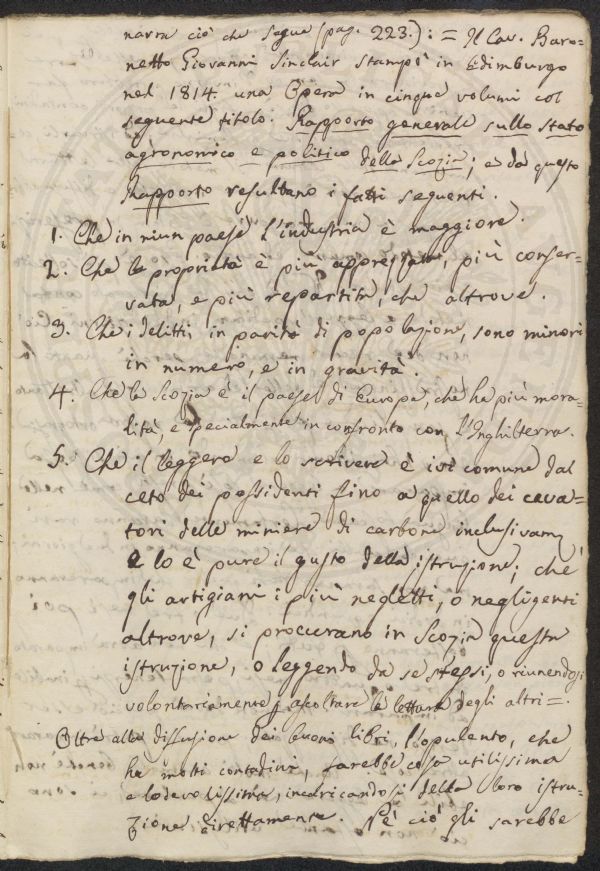 narra ciò che segue (pag. 223.): = Il Cav. Baro-
netto Giovanni Sinclair stampò in Edimburgo
nel 1814. una Opera in cinque volumi col
seguente titolo. Rapporto generale sullo stato
agronomico e politico della Scozia; e da questo
Rapporto resultano i fatti seguenti.
1. Che in niun paese l'industria è maggiore.
2. Che le proprietà è più apprezzata, più conser-
vata, e più repartita, che altrove.
3. Che i delitti in parità di popolazione, sono minori
in numero, e in gravità.
4. Che la Scozia è il paese di Europa, che ha più mora-
lità, e specialmente in confronto con l'Inghilterra.
5. Che il leggere e lo scrivere è ivi comune dal
ceto dei possidenti fino a quello dei cava-
tori delle miniere di carbone inclusivam.
e lo è pure il gusto della istruzione; che
gli artigiani i più negletti, o negligenti
altrove, si procurano in Scozia questa
istruzione, o leggendo da se stessi, o riunendosi
volontariamente ascoltare le letture degli altri =.
Oltre alla diffusione dei buoni libri, l'opulento, che
ha molti contadini, farebbe cosa utilissima
e lodevolissima, incaricandosi della loro istru-
zione direttamente. Nè ciò gli sarebbe